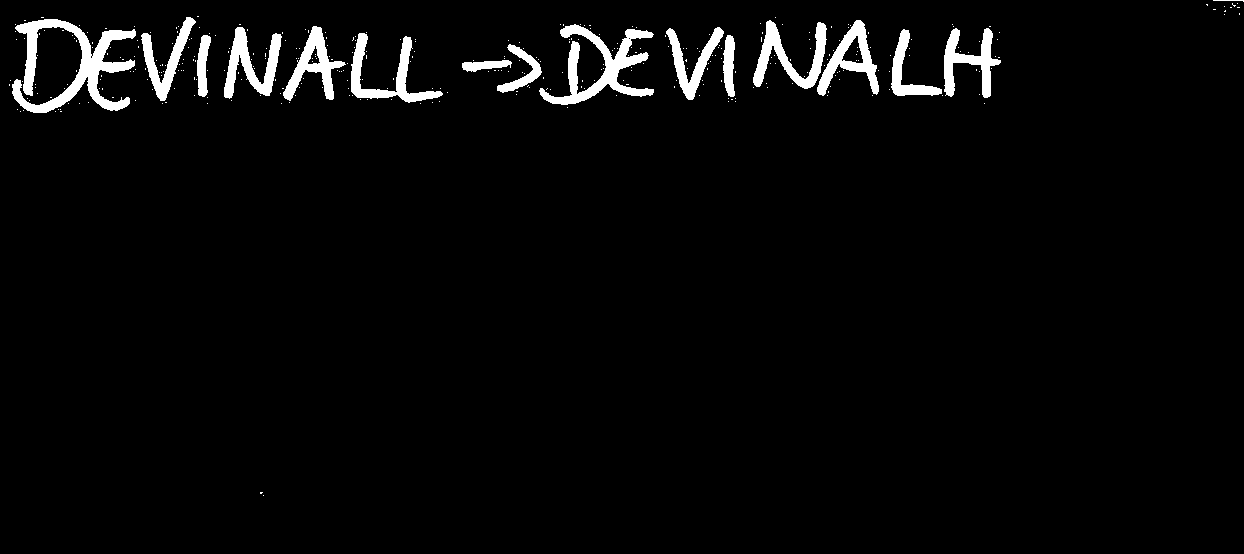 DEVINALL → DEVINALH